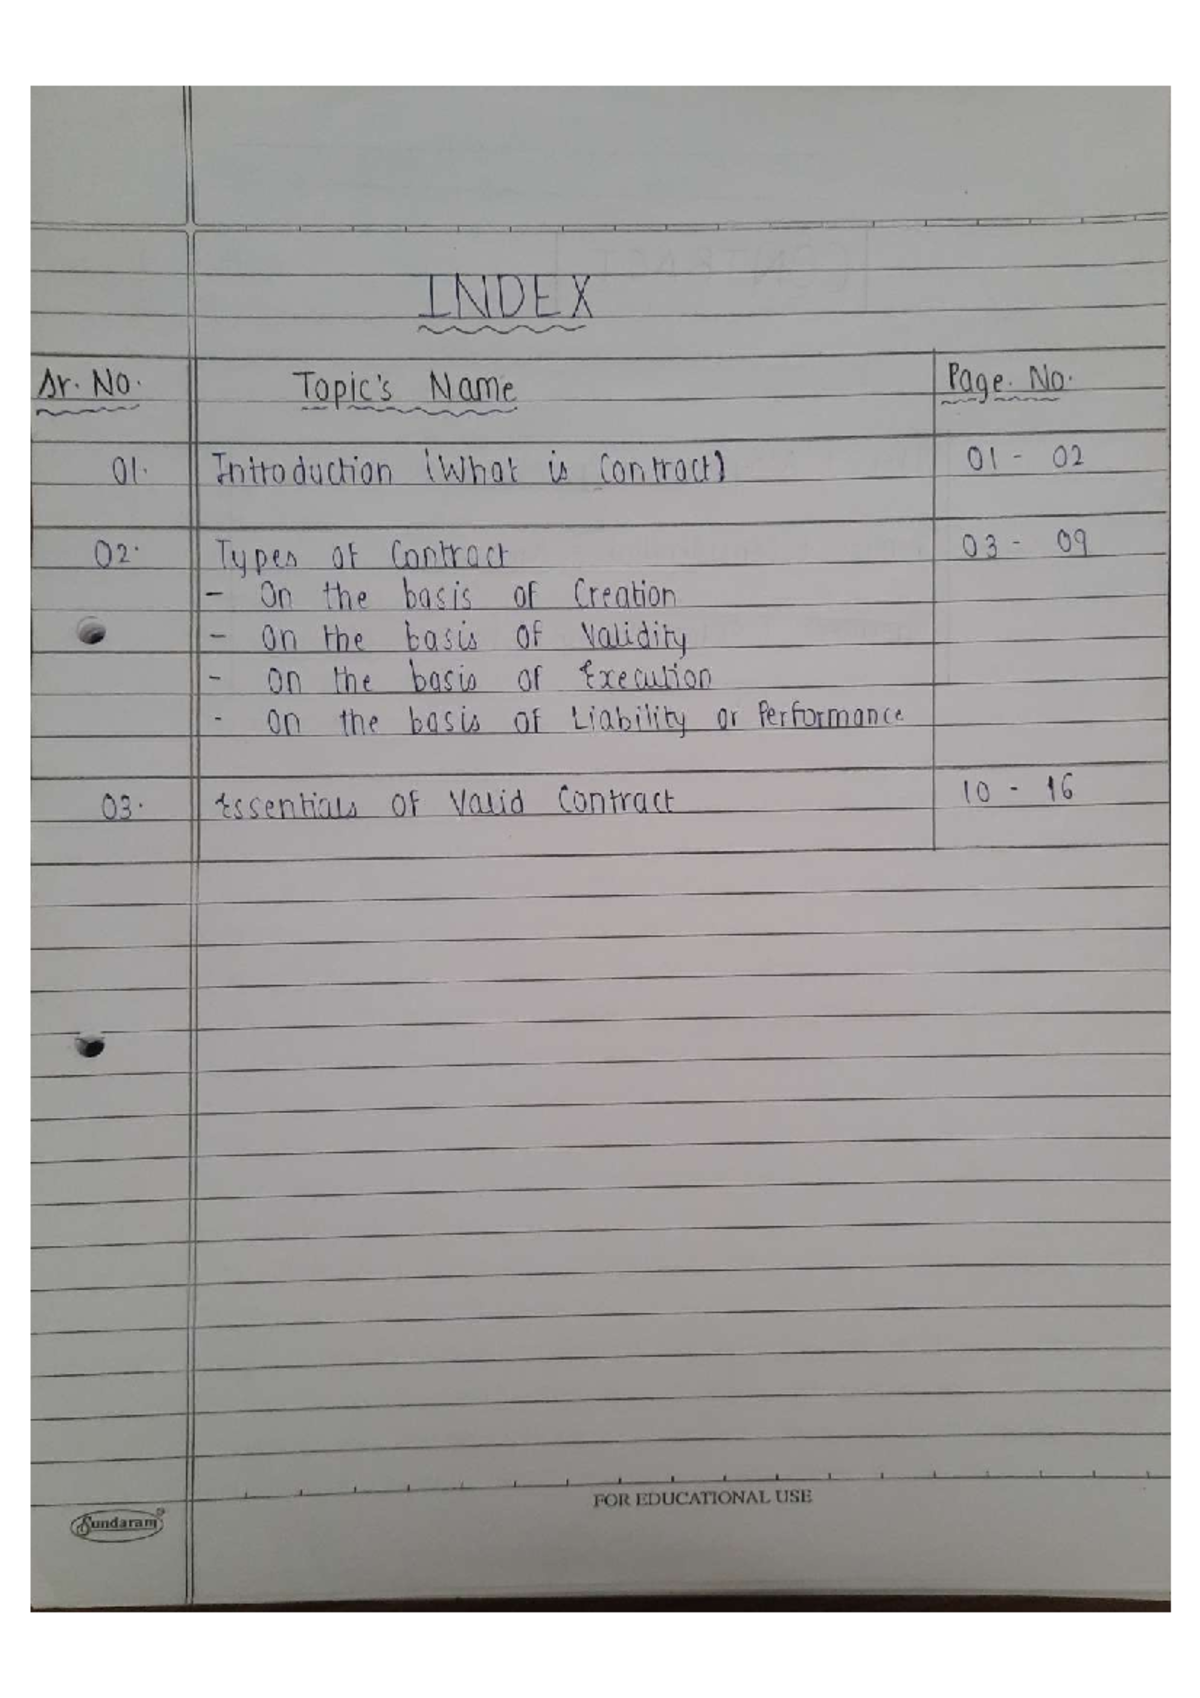 INDEX
Sr. No. Topic's Name Page. No.
01. Introduction (What is Contract) 01 - 02
02. Types of Contract 03 - 09
- On the basis of Creation
- On the basis of Validity
- On the basis of Execution
- On the basis of Liability or Performance
03. Essentials of Valid Contract 10 - 16
FOR EDUCATIONAL USE
Sundaram